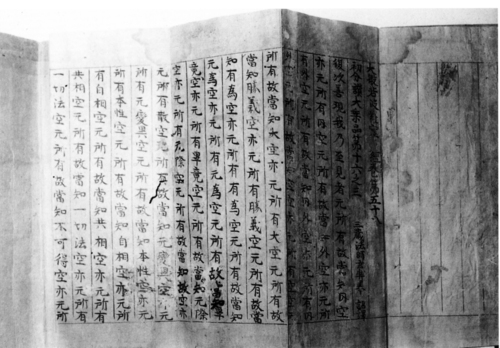 大般若波羅蜜多經卷第五十八
初分讚大乘品第十六之三
三藏法師玄奘奉 詔譯
復次善現我乃至見者无所有故當知內空
亦无所有內空无所有故當知外空亦无所
有外空无所有故當知內外空亦无所有內
所有故當知大空亦无所有大空无所有故
當知勝義空亦无所有勝義空无所有故當
知有為空亦无所有有為空无所有故當知
无為空亦无所有无為空无所有故當知畢
竟空亦无所有畢竟空无所有故當知无際
空亦无所有无際空无所有故當知散空亦
无所有散空无所有故當知无變異空亦无
所有无變異空无所有故當知本性空亦无
所有本性空无所有故當知自相空亦无所
有自相空无所有故當知共相空亦无所有
共相空无所有故當知一切法空亦无所有
一切法空无所有故當知不可得空亦无所